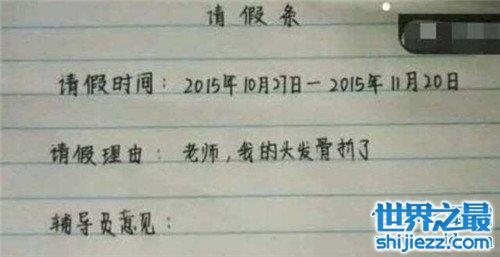 请假条
请假时间：2015年10月27日—2015年11月20日
请假理由：老师，我的头发骨折了
辅导员意见：
世界之最
shijiezz.com